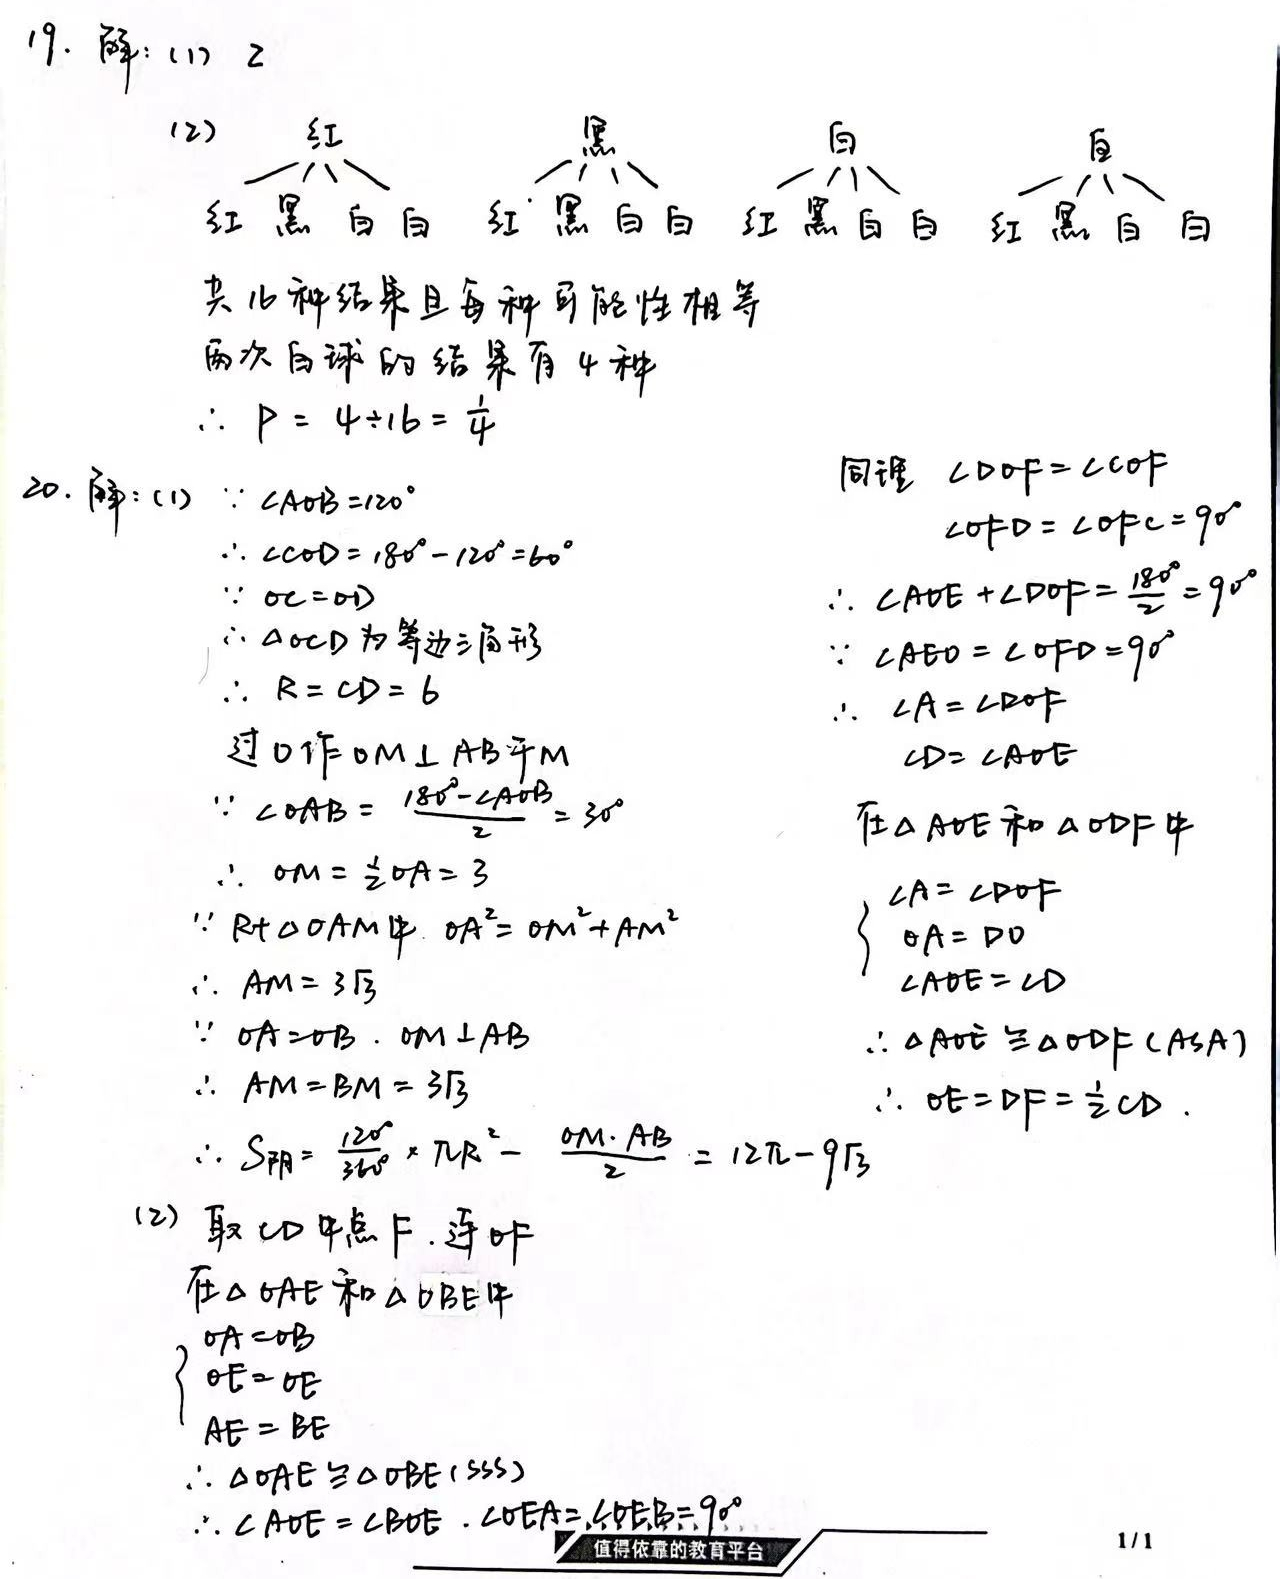 19. 解：(1) 2
(2) 红 黑 白 白
红 黑 白 白 红 黑 白 白 红 黑 白 白 红 黑 白 白
共16种结果且每种可能性相等
两次白球的结果有4种
∴ P = 4÷16 = 1/4
20. 解：(1) ∵ ∠AOB=120°
∴ ∠COD=180°-120°=60°
∵ OC=OD
∴ △OCD为等边三角形
∴ R=CD=6
过O作OM⊥AB于M
∵ ∠OAB = (180°-∠AOB)/2 = 30°
∴ OM = 1/2 OA = 3
∵ Rt△OAM中. OA²=OM²+AM²
∴ AM = 3√3
∵ OA=OB . OM⊥AB
∴ AM=BM=3√3
∴ S阴 = 120°/360° × πR² - (OM·AB)/2 = 12π-9√3
(2) 取CD中点F. 连OF
在△OAE和△OBE中
{ OA=OB
OE=OE
AE=BE
∴ △OAE≌△OBE(SSS)
∴ ∠AOE=∠BOE . ∠OEA=∠OEB=90°
同理 ∠DOF=∠COF
∠OFD=∠OFC=90°
∴ ∠AOE+∠DOF = 180°/2 = 90°
∵ ∠AEO=∠OFD=90°
∴ ∠A=∠DOF
∠D=∠AOE
在△AOE和△ODF中
{ ∠A=∠DOF
OA=DO
∠AOE=∠D
∴ △AOE≌△ODF(ASA)
∴ OE=DF=1/2 CD .
值得依靠的教育平台
1/1